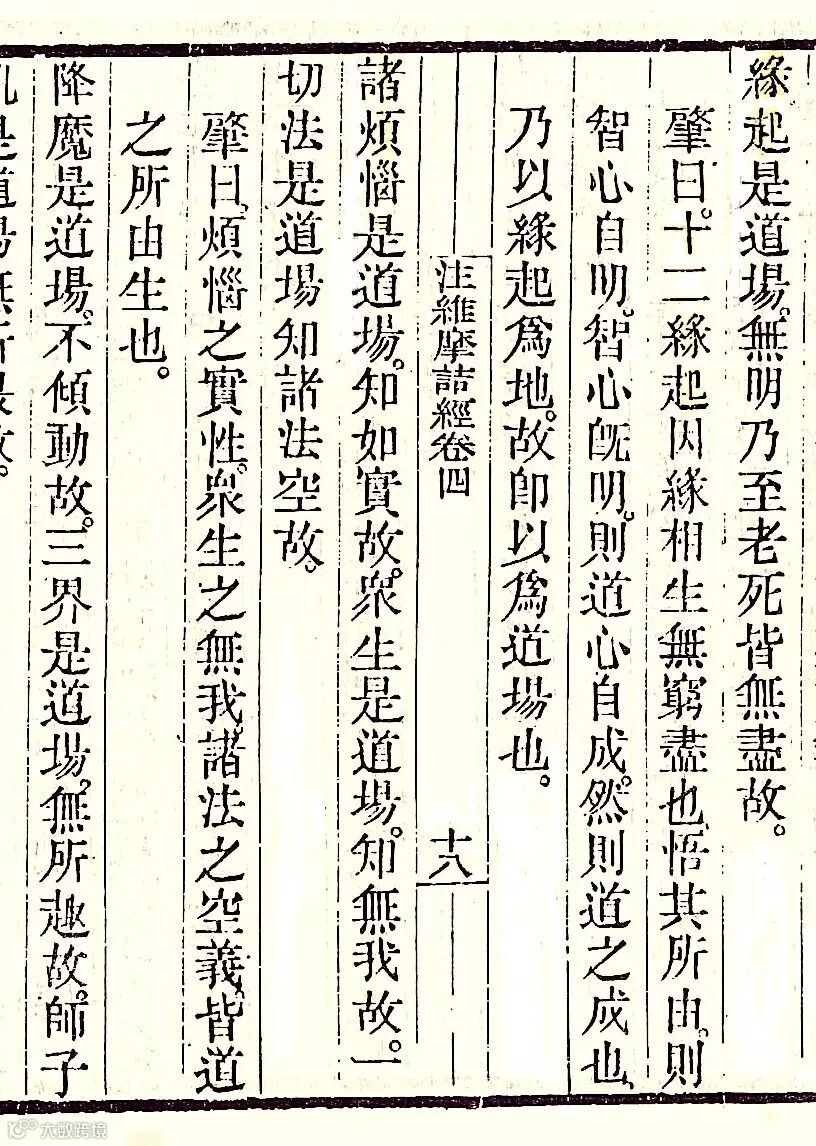 緣起是道場。無明乃至老死皆無盡故。
肇曰。十二緣起因緣相生無窮盡也、悟其所由。則
智心自明。智心旣明。則道心自成。然則道之成也、
乃以緣起爲地。故卽以爲道場也。
注維摩詰經卷四
十八
諸煩惱是道場。知如實故。眾生是道場。知無我故。一
切法是道場知諸法空故。
肇曰。煩惱之實性。眾生之無我。諸法之空義。皆道
之所由生也。
降魔是道場。不傾動故。三界是道場。無所趣故。師子
是道場無所畏故。
大數跨境